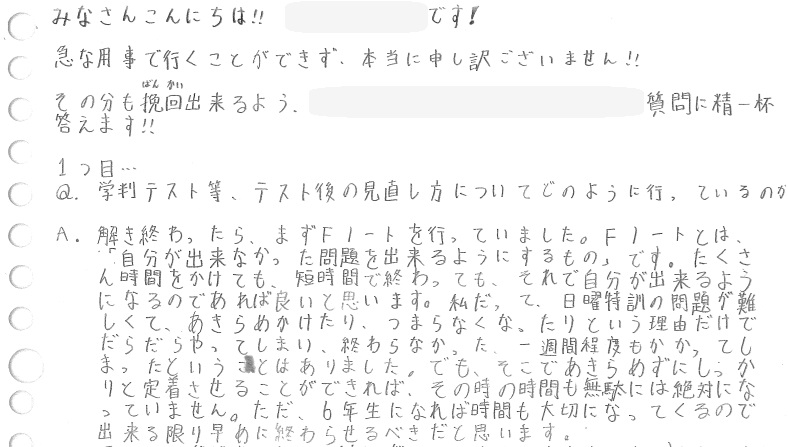 みなさんこんにちは!! です!
急な用事で行くことができず、本当に申し訳ございません!!
ばん かい
その分も挽回出来るよう、 質問に精一杯
答えます!!
1つ目…
Q. 学判テスト等、テスト後の見直し方についてどのように行っているのか
A. 解き終わったら、まずFノートを行っていました。Fノートとは、
「自分が出来なかった問題を出来るようにするもの」です。たくさ
ん時間をかけても、短時間で終わっても、それで自分が出来るよう
になるのであれば良いと思います。私だって、日曜特訓の問題が難
しくて、あきらめかけたり、つまらなくなったりという理由だけで
だらだらやってしまい、終わらなかった、一週間程度もかかってし
まったということはありました。でも、そこであきらめずにしっか
りと定着させることができれば、その時の時間も無駄には絶対にな
っていません。ただ、6年生になれば時間も大切になってくるので
出来る限り早めに終わらせるべきだと思います。